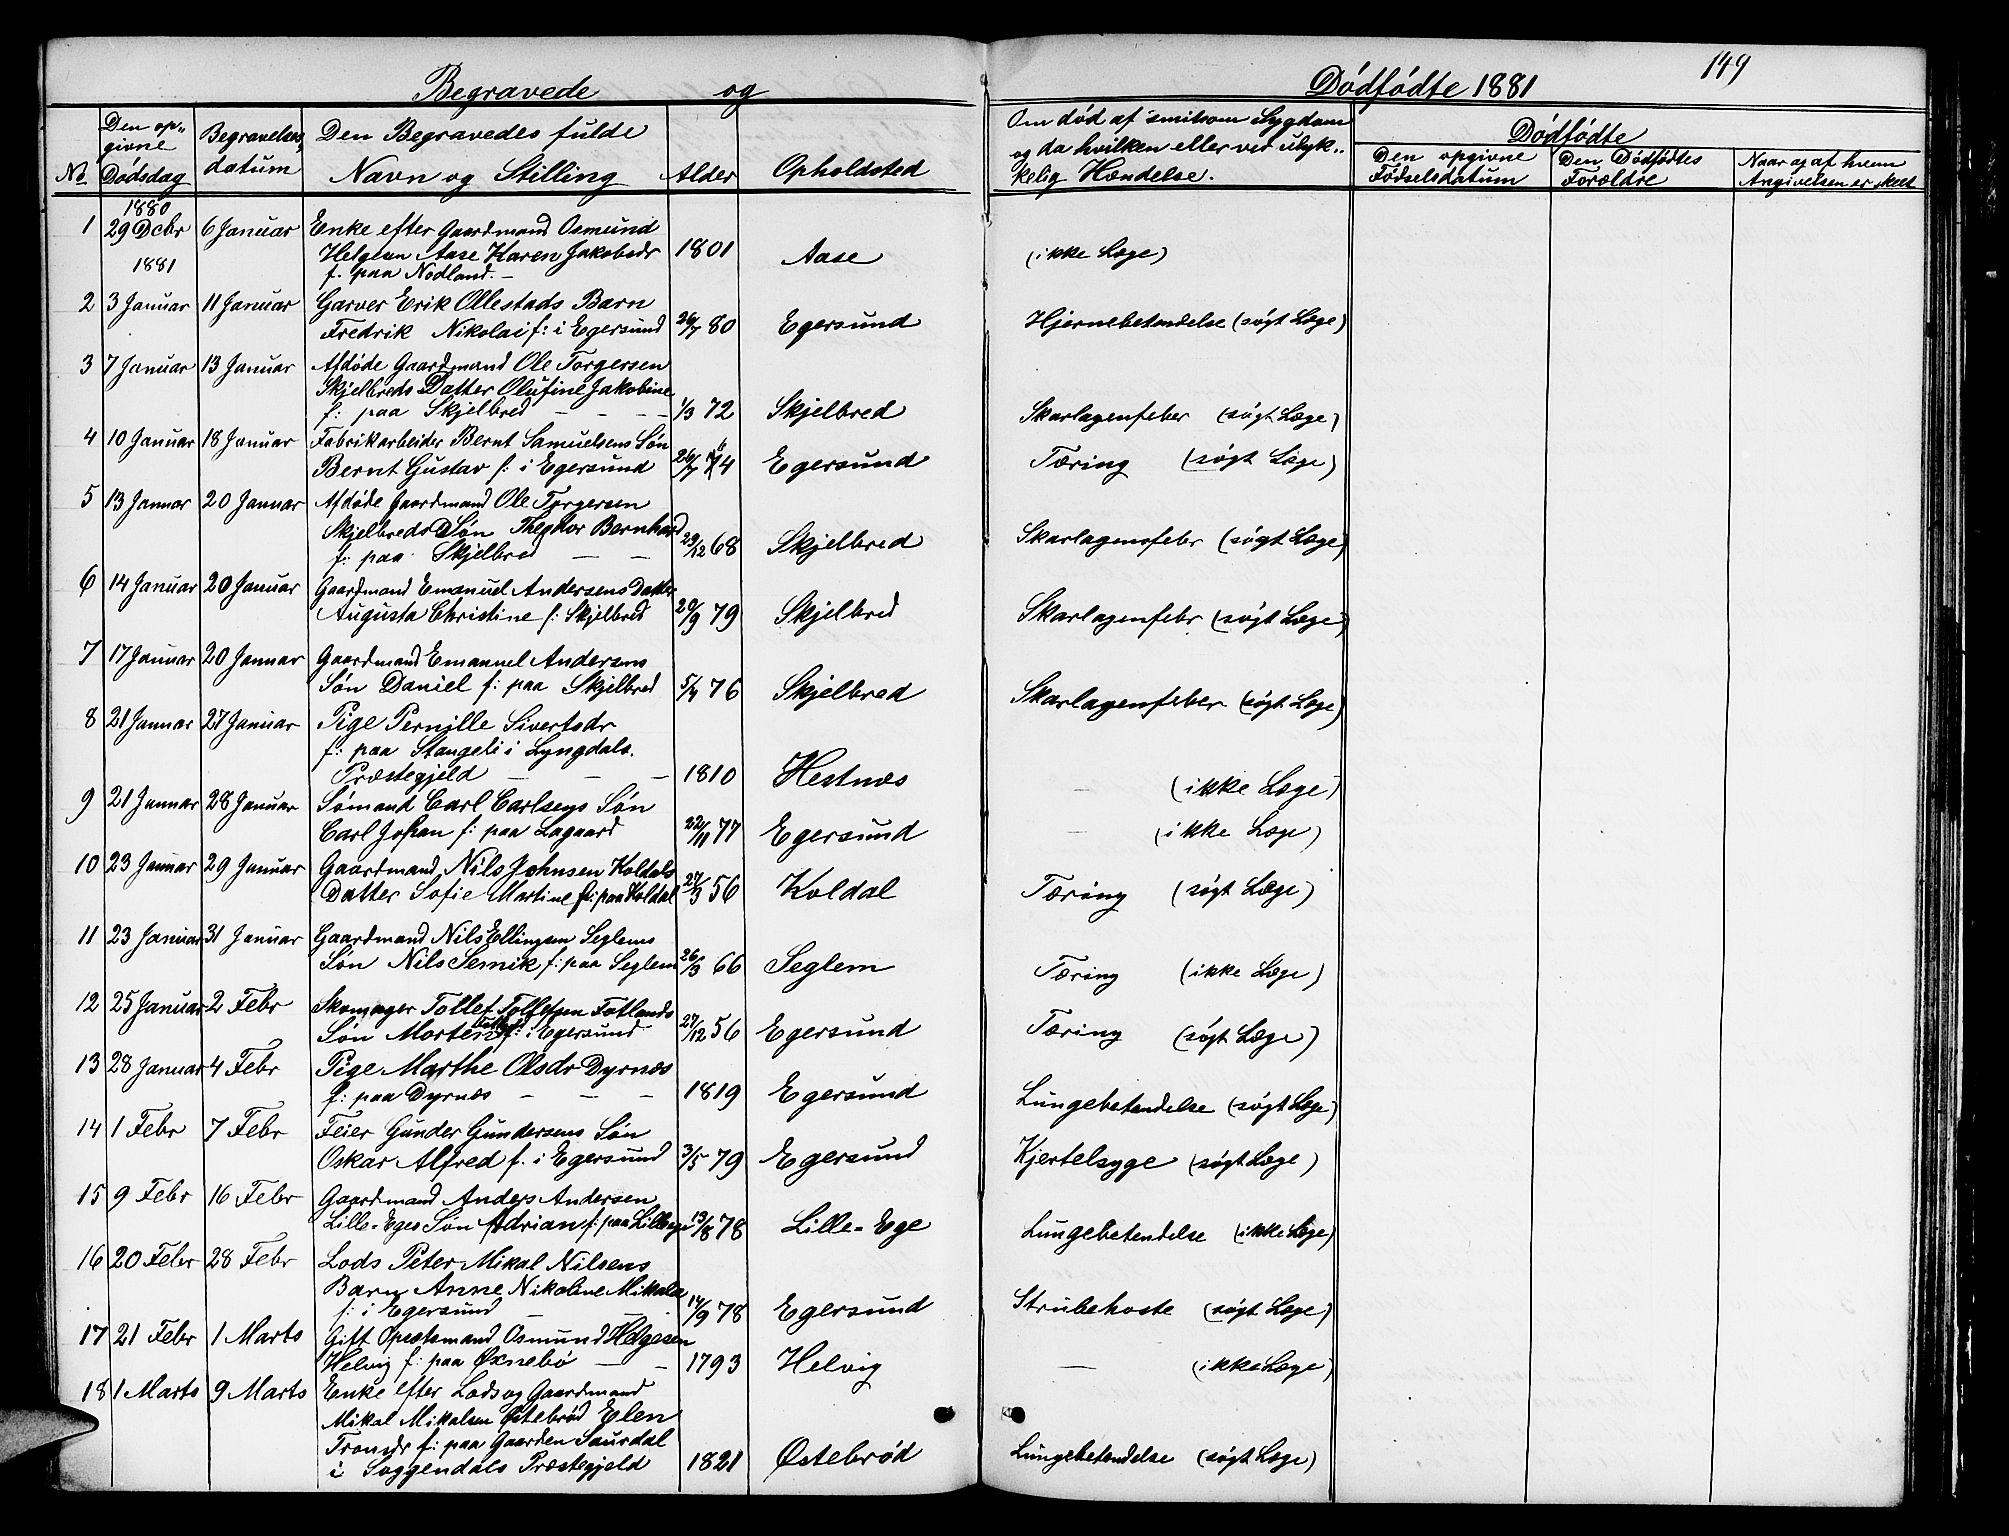 149
Begravede og Dødfødte 1881
No
Den op-givne Dødsdag
Begravelses-datum
Den Begravedes fulde Navn og Stilling
Alder
Opholdsted
Om død af smitsom Sygdom og da hvilken eller ved ulyk-kelig Hændelse.
Dødfødte
Den opgivne Fødselsdatum
Den Dødfødtes Forældre
Naar og af hvem Angivelsen er skeet
1880
1 29 Dcbr 6 Januar Enke efter Gaardmand Osmund
1881 Helgesen Aase Karen Jakobsdr 1801 Aase (ikke Læge)
f. paa Nodland. -
2 3 Januar 11 Januar Garver Erik Ollestads Barn
Fredrik Nikolai f: i Egersund 26/7 80 Egersund Hjernebetendelse (søgt Læge)
3 7 Januar 13 Januar Afdøde Gaardmand Ole Torgersen
Skjelbreds Datter Olufine Jakobine
f: paa Skjelbred - - - 1/3 72 Skjelbred Skarlagenfeber (søgt Læge)
4 10 Januar 18 Januar Fabrikarbeider Bernt Samuelsens Søn
Bernt Gustav f: i Egersund 26/7 Egersund Tæring (søgt Læge)
5 13 Januar 20 Januar Afdøde Gaardmand Ole Torgersen
Skjelbreds Søn Theodor Bernhard
f: paa Skjelbred - - 29/12 68 Skjelbred Skarlagensfebr (søgt Læge)
6 14 Januar 20 Januar Gaardmand Emanuel Andersens Datter
Augusta Christine f: Skjelbred 20/9 79 Skjelbred Skarlagenfebr (søgt Læge)
7 17 Januar 20 Januar Gaardmand Emanuel Andersens
Søn Daniel f: paa Skjelbred 5/4 76 Skjelbred Skarlagenfeber (søgt Læge)
8 21 Januar 27 Januar Pige Pernille Sivertsdr
f: paa Stangeli i Lyngdals.
Præstegjeld - - - 1810 Hestnæs - (ikke Læge)
9 21 Januar 28 Januar Sømand Carl Carlsens Søn
Carl Johan f: paa Lagaard 22/11 77 Egersund - (ikke Læge)
10 23 Januar 29 Januar Gaardmand Nils Johnsen Koldals
Datter Sofie Martine f: paa Koldal 27/3 56 Koldal Tæring (søgt Læge)
11 23 Januar 31 Januar Gaardmand Nils Ellingsen Seglems
Søn Nils Semik f: paa Seglem 26/3 66 Seglem Tæring (ikke Læge)
12 25 Januar 2 Febr Skomager Tollef Tollefsen Fotlands
Søn Morten f: i Egersund 27/12 56 Egersund Tæring (søgt Læge)
13 28 Januar 4 Febr Pige Marthe Olsdr Dyrnæs
f: paa Dyrnæs - - - 1819 Egersund Lungebetendelse (søgt Læge)
14 1 Febr 7 Febr Feier Gunder Gundersens Søn
Oskar Alfred f. i Egersund 3/5 79 Egersund Kjertelsyge (søgt Læge)
15 9 Febr 16 Febr Gaardmand Anders Andersen
Lille-Eges Søn Adrian f: paa Lilleege 13/8 78 Lille-Ege Lungebetendelse (ikke Læge)
16 20 Febr 28 Febr Lods Peter Mikal Nilsens
Barn Anne Nikoline Mikalea
f: i Egersund - 14/9 78 Egersund Strubehoste (søgt Læge)
17 21 Febr 1 Marts Gift Opsatsmand Osmund Helgesen
Helvig f: paa Øxnebø - - 1793 Helvig - (ikke Læge)
18 1 Marts 9 Marts Enke efter Lods og Gaardmand
Mikal Mikalsen Østebrød Elen
Tronsdr f: paa Gaarden Saurdal
i Soggendals Præstegjeld 1821 Østebrød Lungebetendelse (søgt Læge)